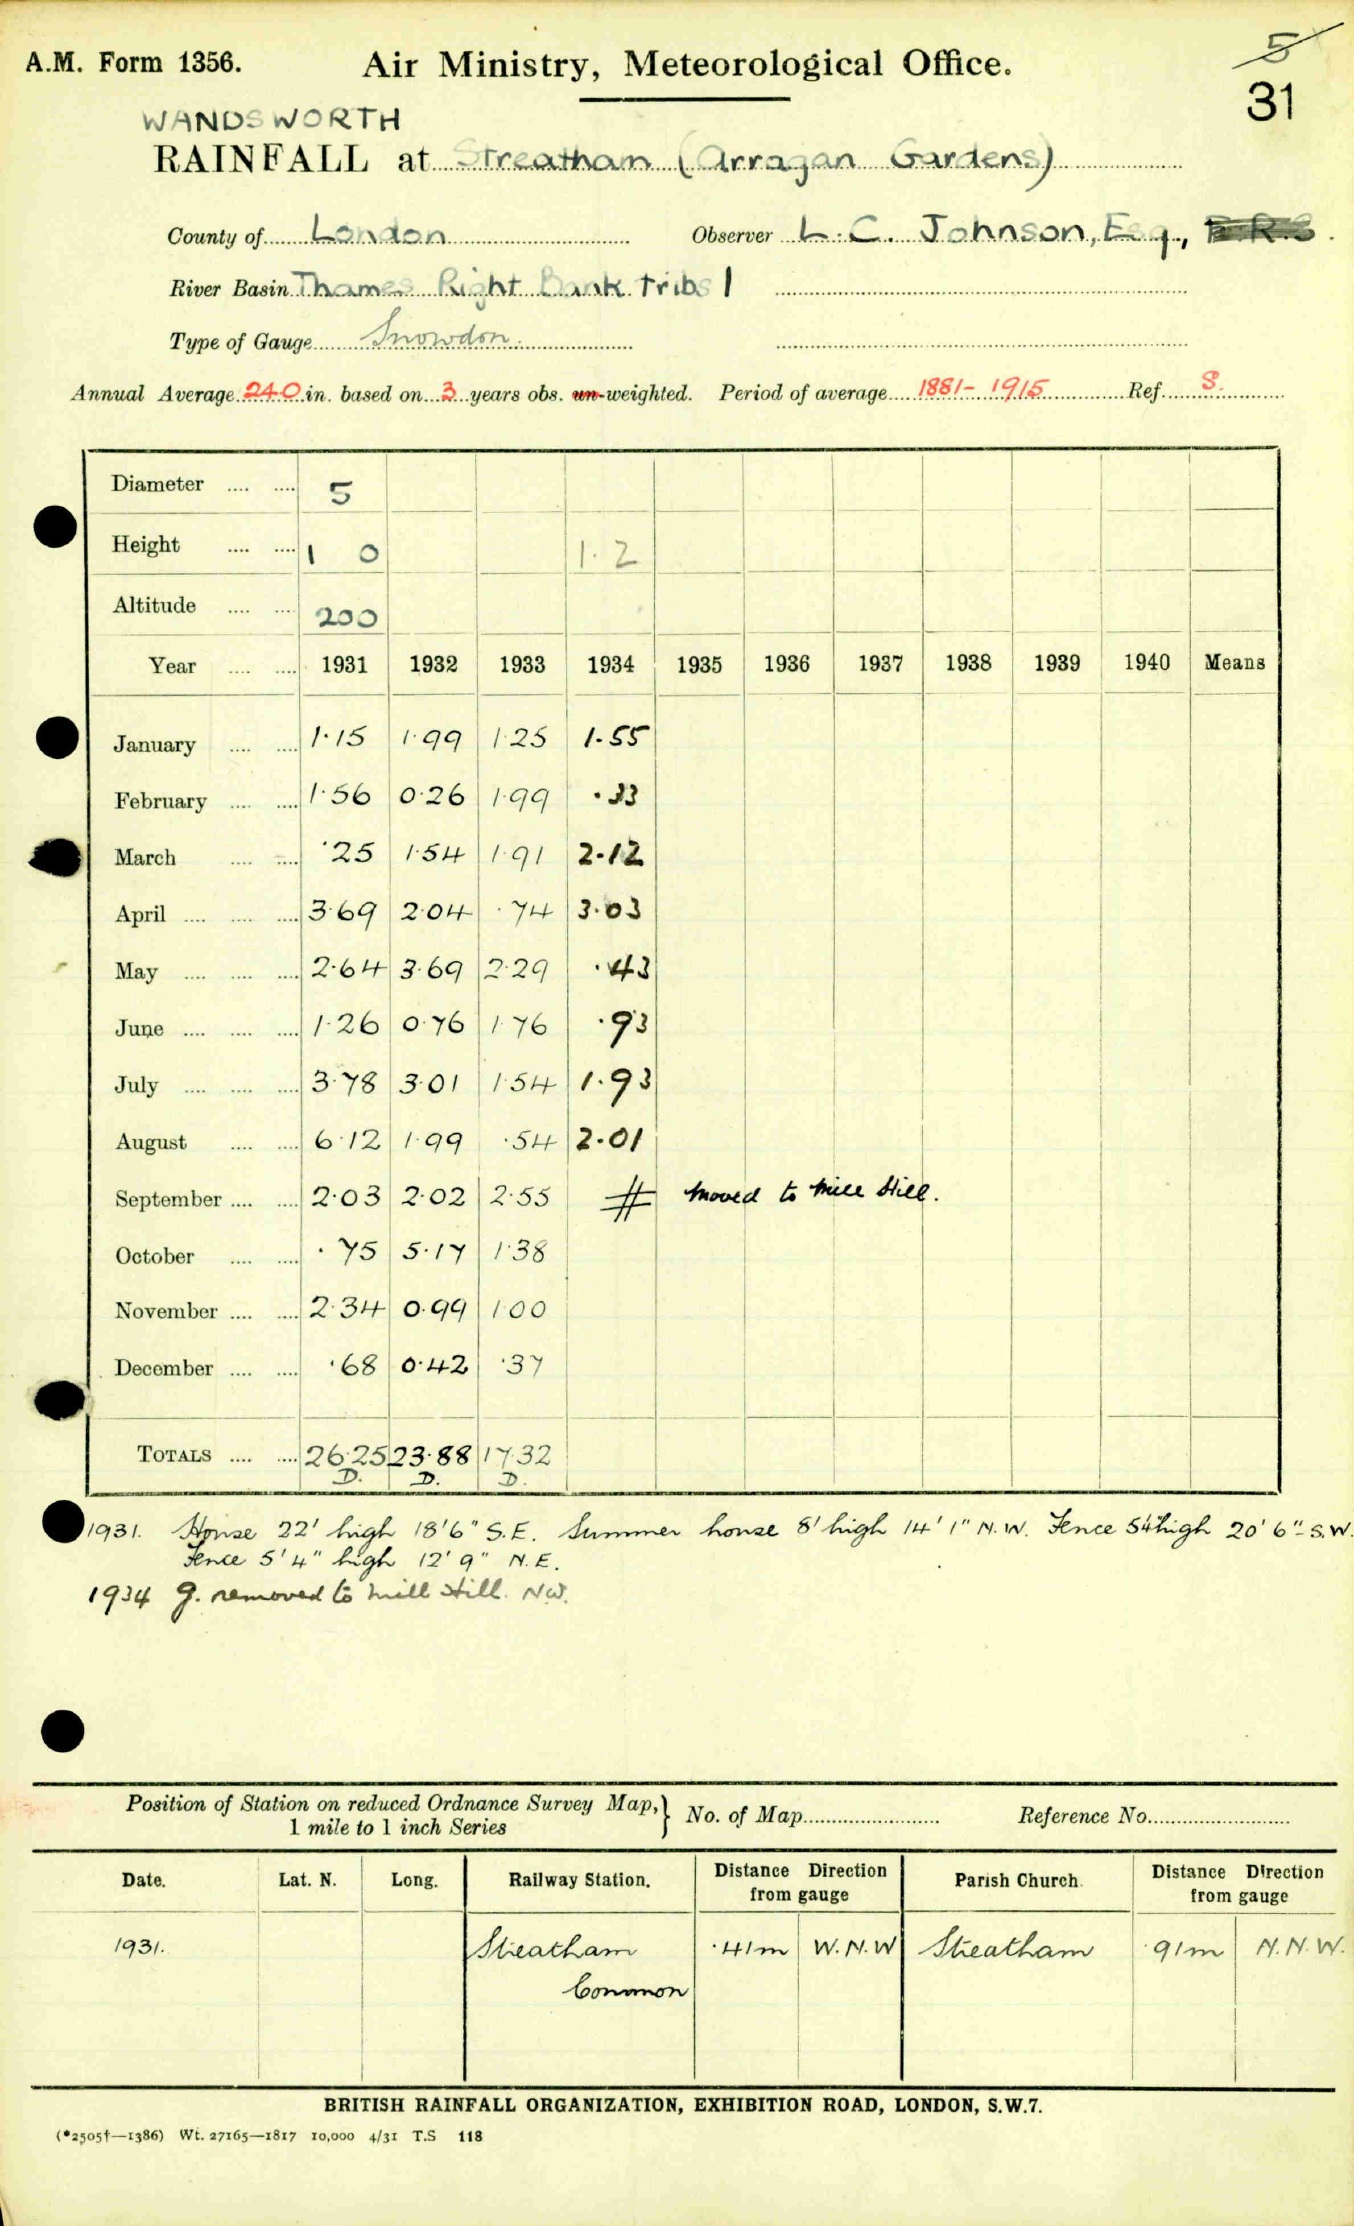 A.M. Form 1356. Air Ministry, Meteorological Office. 5
31
WANDSWORTH
RAINFALL at Streatham (Arragan Gardens)
County of London Observer L. C. Johnson, Esq.,
River Basin Thames Right Bank Tribs 1
Type of Gauge Snowdon.
Annual Average 24.0 in. based on 3 years obs. un-weighted. Period of average 1881- 1915 Ref. S.
Diameter .... .... 5
Height .... .... 1 0 1.2
Altitude .... .... 200
Year .... .... 1931 1932 1933 1934 1935 1936 1937 1938 1939 1940 Means
January .... .... 1.15 1.99 1.25 1.55
February .... .... 1.56 0.26 1.99 .33
March .... .... .25 1.54 1.91 2.12
April .... .... .... 3.69 2.04 .74 3.03
May .... .... .... 2.64 3.69 2.29 .43
June .... .... .... 1.26 0.76 1.76 .93
July .... .... .... 3.78 3.01 1.54 1.93
August .... .... 6.12 1.99 .54 2.01
September .... .... 2.03 2.02 2.55 # Moved to Mill Hill.
October .... .... .75 5.17 1.38
November .... .... 2.34 0.99 1.00
December .... .... .68 0.42 .37
TOTALS .... .... 26.25 23.88 17.32
D. D. D.
1931. House 22' high 18'6" S.E. Summer house 8' high 14' 1" N.W. Fence 5'4" high 20' 6" S.W.
Fence 5'4" high 12' 9" N.E.
1934 g. removed to Mill Hill. N.W.
Position of Station on reduced Ordnance Survey Map,} No. of Map Reference No.
1 mile to 1 inch Series
Date. Lat. N. Long. Railway Station. Distance Direction from gauge Parish Church. Distance Direction from gauge
1931. Streatham .41m W.N.W Streatham .91m N.N.W.
Common
BRITISH RAINFALL ORGANIZATION, EXHIBITION ROAD, LONDON, S.W.7.
(*2505†—1386) Wt. 27165—1817 10,000 4/31 T.S 118